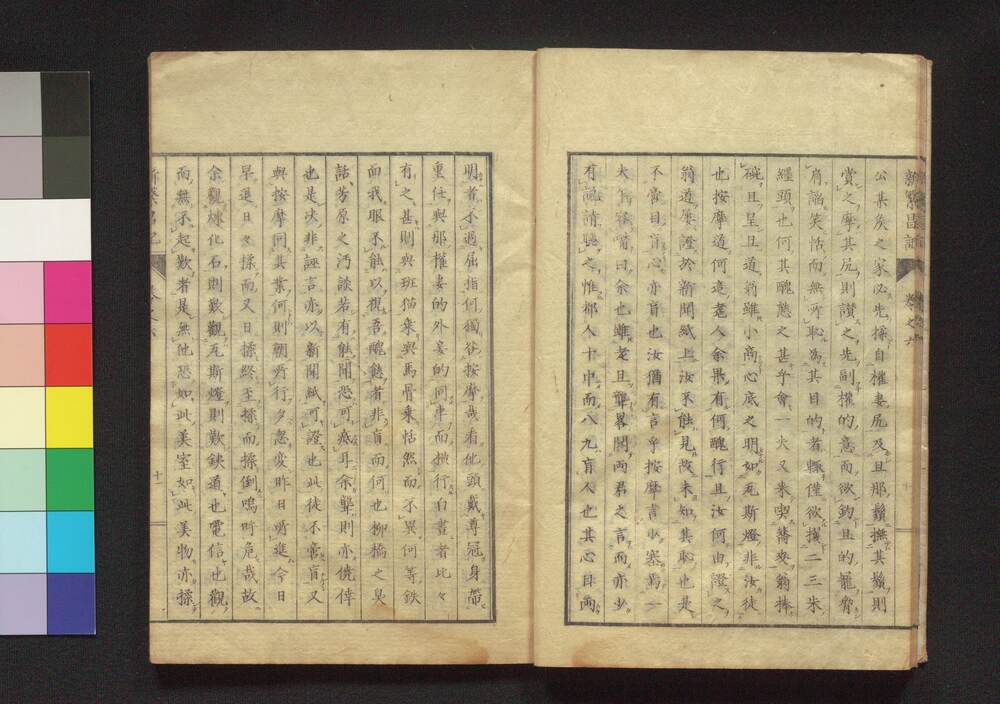 公某矣之家必先探自權妻尻及且那鬚撫其鬚則
賞之摩其尻則讃之先副權的意而欲鈎且的寵脅
肩諂笑恬而無所恥為其目的者輒僅欲攫二三朱
纏頭也何其醜態之甚乎會一犬又來喫蕎麥翁捧
碗且呈且道翁雖小商心底之明如瓦斯燈非汝徒
也按摩道何遠耄人余果有何醜行且汝何由證之
翁道屢證於新聞紙上汝不能見故未知其恥也是
不啻目盲心亦盲也汝猶有言乎按摩言少塞焉一
犬
有說請聽之惟都人十中而八九盲人也其心目兩
明者不過屈指何獨谷按摩哉看他頭戴尊冠身帶
重任與那權妻的外妾的同車而橫行白晝者比々
有之甚則與班猫乘與馬骨乘恬然而不異何等鉄
面我眼不能以視吾醜態者非盲而何也柳橋之臭
話芳原之汚談若有能聞恐可喪耳余聾則亦僥倖
也是决非誣言亦以新聞紙可證也此徒不啻盲又
與按摩同其業何則朝所行夕忽變昨日所進今日
早退日々揉而又日揉終至揉而揉倒嗚呼危哉故
余觀煉化石則歎觀瓦斯燈則歎鉄道也電信也觀
而無不起歎者是無他恐如此美室如此美物亦揉
新繁昌記 卷之六
十一